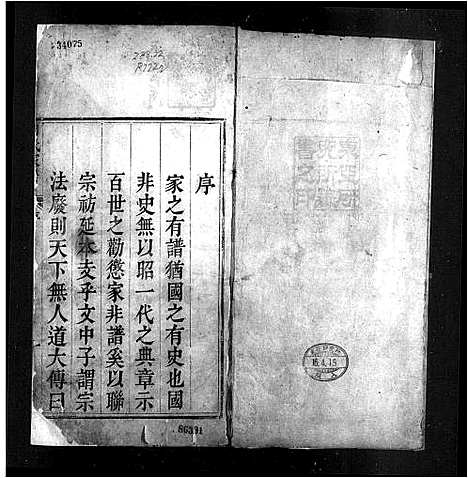 序
家之有譜猶國之有史也國
非史無以昭一代之典章示
百世之勸懲家非譜奚以聯
宗祊延本支乎文中子謂宗
法廢則天下無人道大傳曰
34075
86391
16.4.15